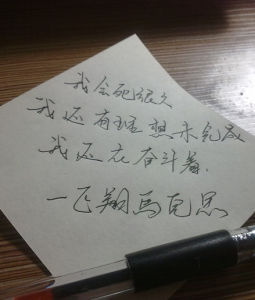 我会死很久
我还有理想未完成
我还在奋斗着.
一飞翔馬克思